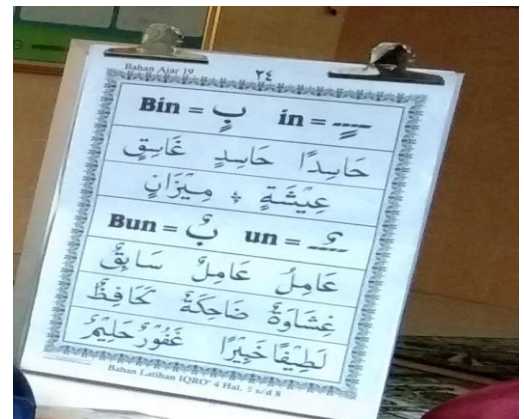 Bahan Ajar 19
٢٤
Bin = بٍ in = ـٍ
حَاسِدًا حَاسِدٍ غَاسِقٍ
عِيْشَةٍ ؞ مِيْزَانٍ
Bun = بٌ un = ـٌ
عَامِلُ عَامِلٌ سَابِقٌ
غِشَاوَةٌ ضَاحِكَةٌ لَحَافِظٌ
لَطِيْفًا خَبِيْرًا غَفُوْرٌ حَلِيْمٌ
Bahan Latihan IQRO' 4 Hal. 5 s/d 8